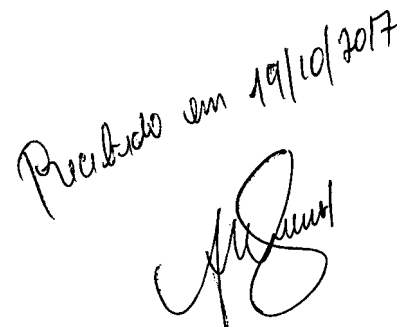 Recebido em 19/10/2017